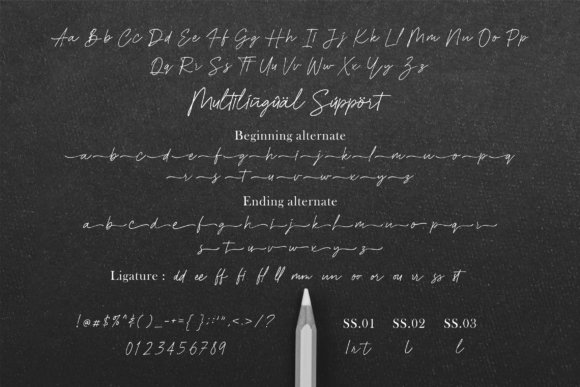 Aa Bb Cc Dd Ee Ff Gg Hh Ii Jj Kk Ll Mm Nn Oo Pp
Qq Rr Ss Tt Uu Vv Ww Xx Yy Zz
Multilingüäl Süppört
Beginning alternate
a-b-c-d-e-f-g-h-i-j-k-l-m-n-o-p-q
r-s-t-u-v-w-x-y-z
Ending alternate
a-b-c-d-e-f-g-h-i-j-k-l-m-n-o-p-q-r-
s-t-u-v-w-x-y-z
Ligature : dd ee ff ft fl ll mm nn oo or ou ur ss st
!@#$%^&()_-+={}:;'",<.>/? SS.01 SS.02 SS.03
0123456789 l r t l l